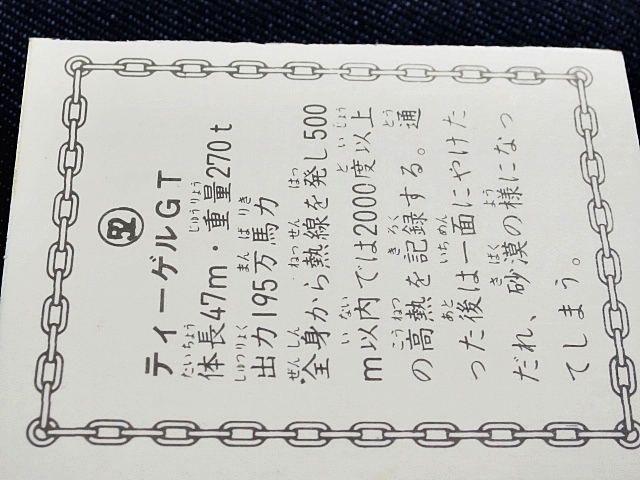 52
ティーゲルGT
体長47m・重量270t
出力195万馬力
全身から熱線を発し500
m以内では2000度以上
の高熱を記録する。通
った後は一面にやけた
だれ、砂漠の様になっ
てしまう。